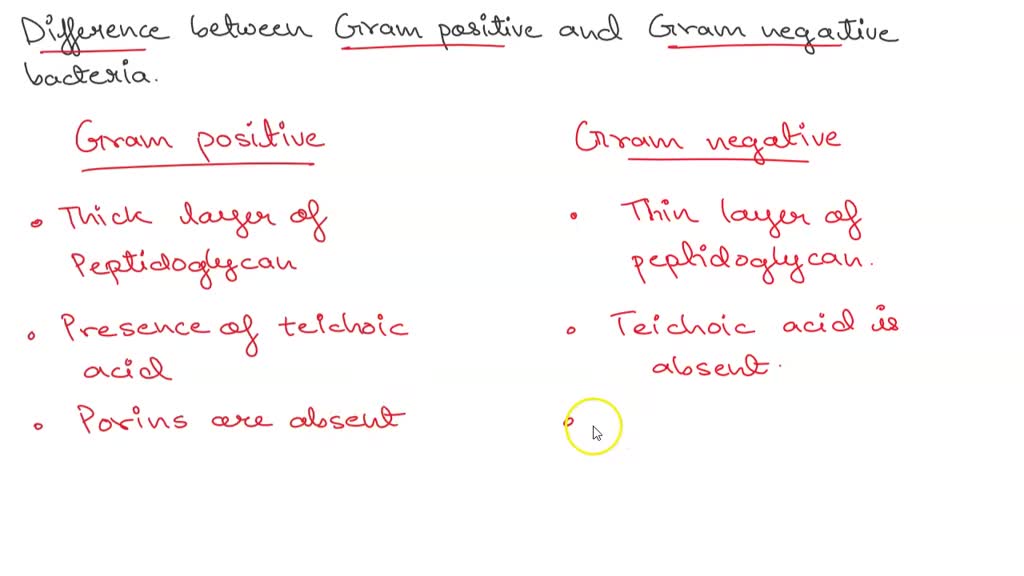 Difference between Gram positive and Gram negative
bacteria.
Gram positive
Gram negative
• Thick layer of
Peptidoglycan
• Thin layer of
peptidoglycan.
• Presence of teichoic
acid
• Teichoic acid is
absent.
• Porins are absent
•